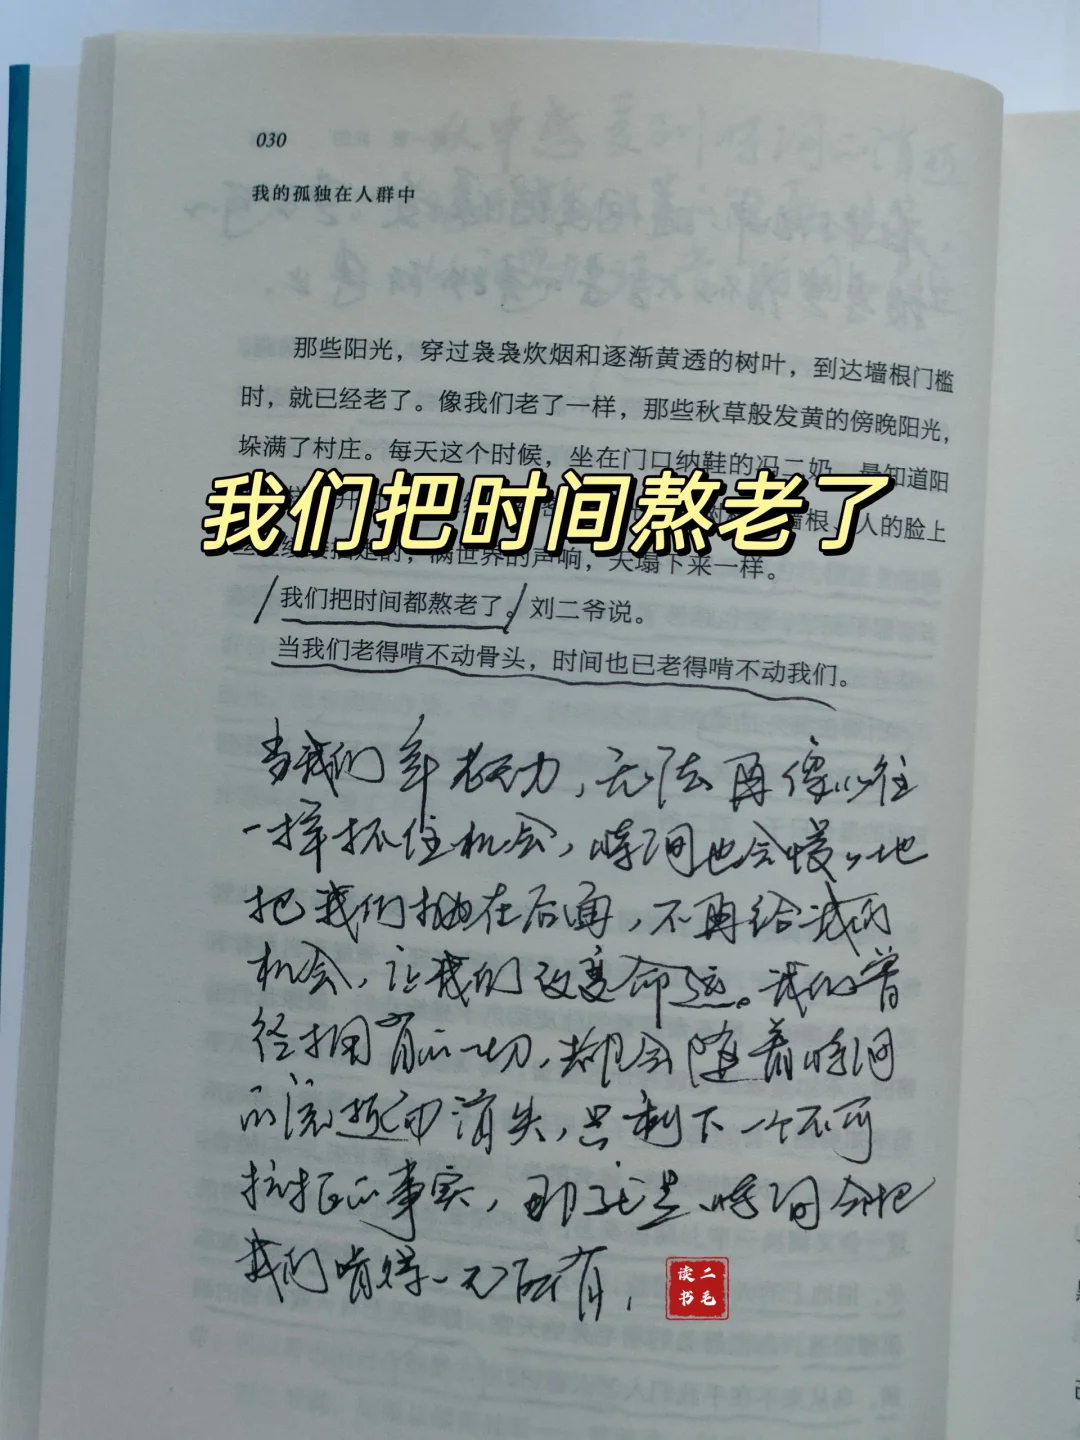 030
我的孤独在人群中
那些阳光，穿过袅袅炊烟和逐渐黄透的树叶，到达墙根门槛
时，就已经老了。像我们老了一样，那些秋草般发黄的傍晚阳光，
垛满了村庄。每天这个时候，坐在门口纳鞋的冯二奶，最知道阳
我们把时间熬老了
墙根、人的脸上
的声响，天塌下来一样。
我们把时间都熬老了。刘二爷说。
当我们老得啃不动骨头，时间也已老得啃不动我们。
当我们年老无力，无法再像以往
一样抓住机会，时间也会慢慢地
把我们抛在后面，不再给我们
机会，让我们改变命运。我们曾
经拥有的一切，都会随着时间
的流逝而消失，只剩下一个不可
抗拒的事实，那就是时间会把
我们啃得一无所有，
读二
书毛